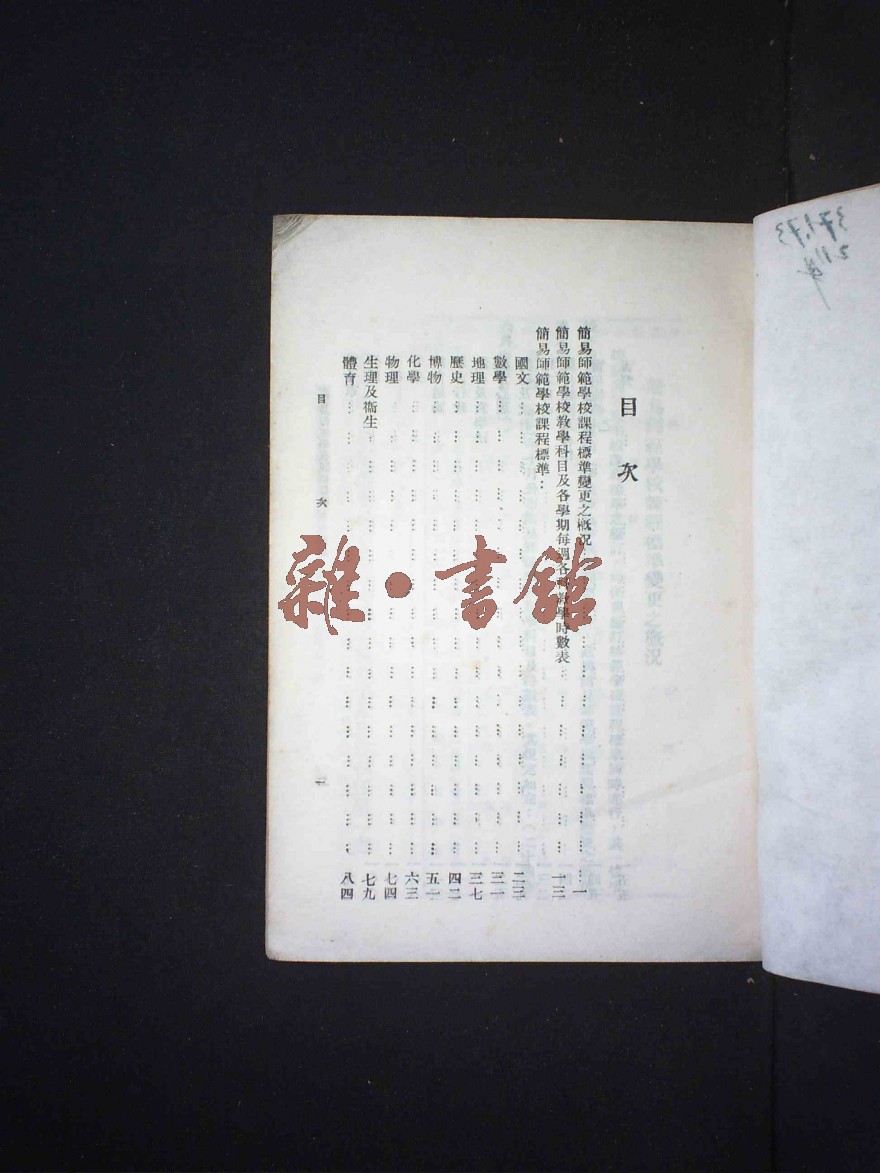 目次
簡易師範學校課程標準變更之概況……一
簡易師範學校教學科目及各學期每週各科教學時數表……一三
簡易師範學校課程標準：
國文……二三
數學……三一
地理……三七
歷史……四二
博物……五一
化學……六三
物理……七四
生理及衞生……七九
體育……八四
目次
雜·書館
371.73